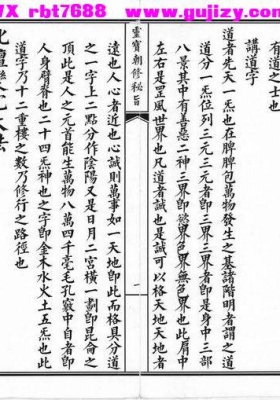 VX rbt7688 www.gujizy.com
有道之士也
講道字
道者先天一炁也在脾脾包萬物發生之基諸階明者謂之道
道分一炁位列三元三元者即三界三界者即是身中三部
八景其中有善惡二神三界即慾界色界無色界也此肩中
左右是罡風世界也凡道者誠也是誠可以格天地天地者
靈寶朝修秘旨
一
遠也人心者近也心誠則萬事如一天地即此而格具分道
之一字上二點分作陰陽又是日月二宮橫一劃即崑侖之
頂此是人之元首能生萬物八萬四千毫毛孔竅中自者即
人身臂脊也二十四炁神也之字即金木水火土五炁也此
道字乃十二重樓之數乃修行之路徑也